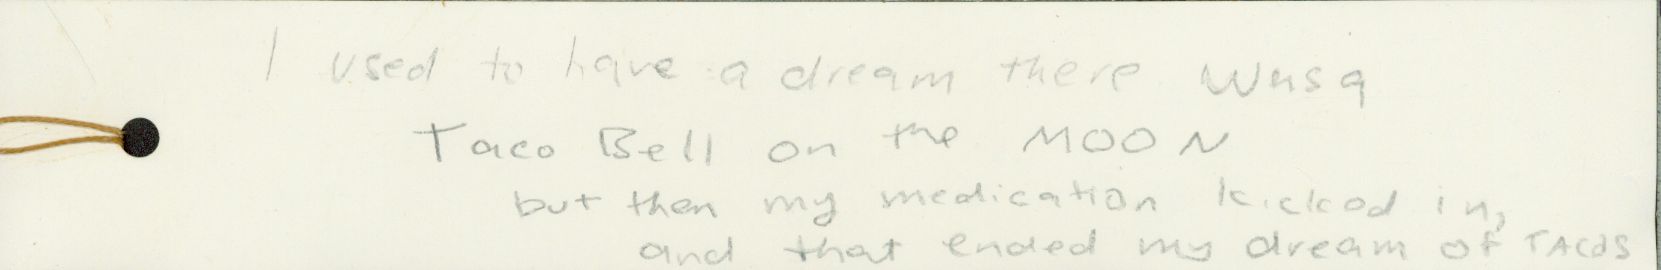 I used to have a dream there was a
Taco Bell on the MOON
but then my medication kicked in,
and that ended my dream of TACOS